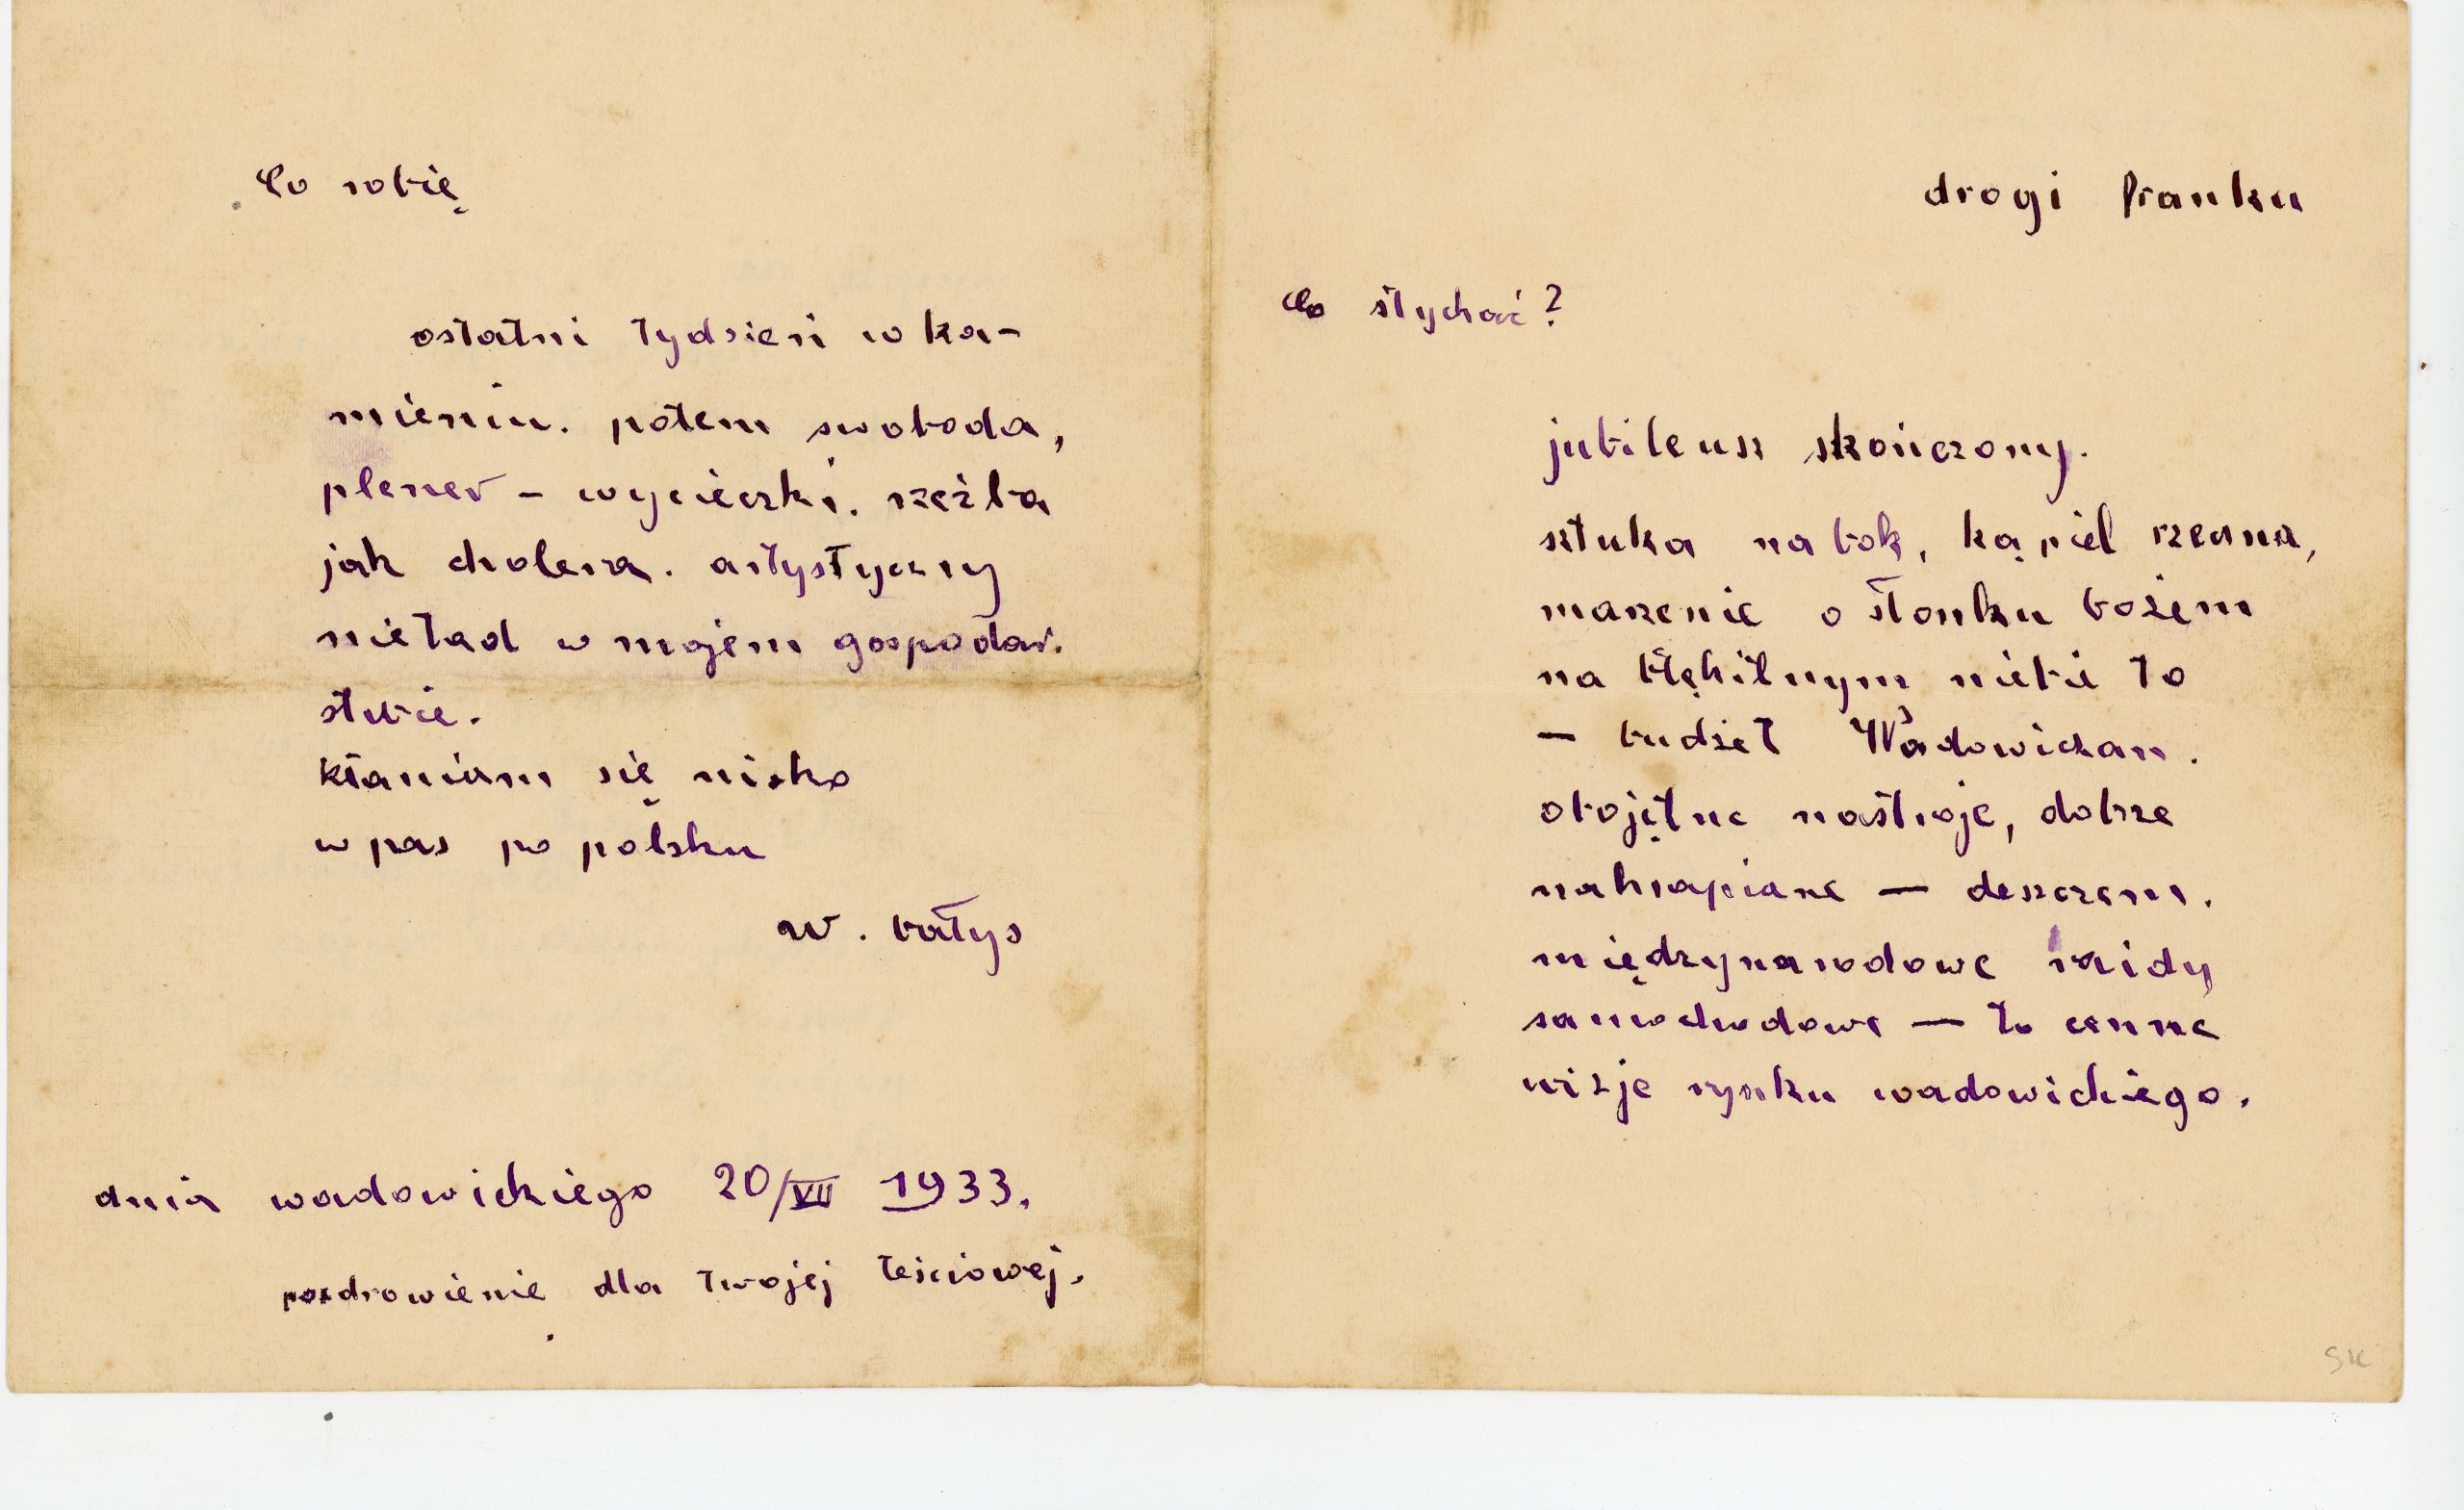 drogi franku
Co słychać?
jubileusz skończony.
sztuka na bok, kąpiel rzewna,
marzenie o słonku bożem
na błękitnym niebie to
— budżet Wadowiczan.
obojętne nastroje, dobrze
nakrapiane — deszczem.
międzynarodowe raidy
samochodowe — to cenne
wizje rynku wadowickiego.
Co robię
ostatni tydzień w ka-
mieniu. potem swoboda,
plener - wycieczki. rzeźba
jak cholera. artystyczny
nieład w mojem gospodar.
stwie.
kłaniam się nisko
w pas po polsku
w. bałys
dnia wadowickiego 20/VII 1933.
pozdrowienie dla twojej teściowej.
SK